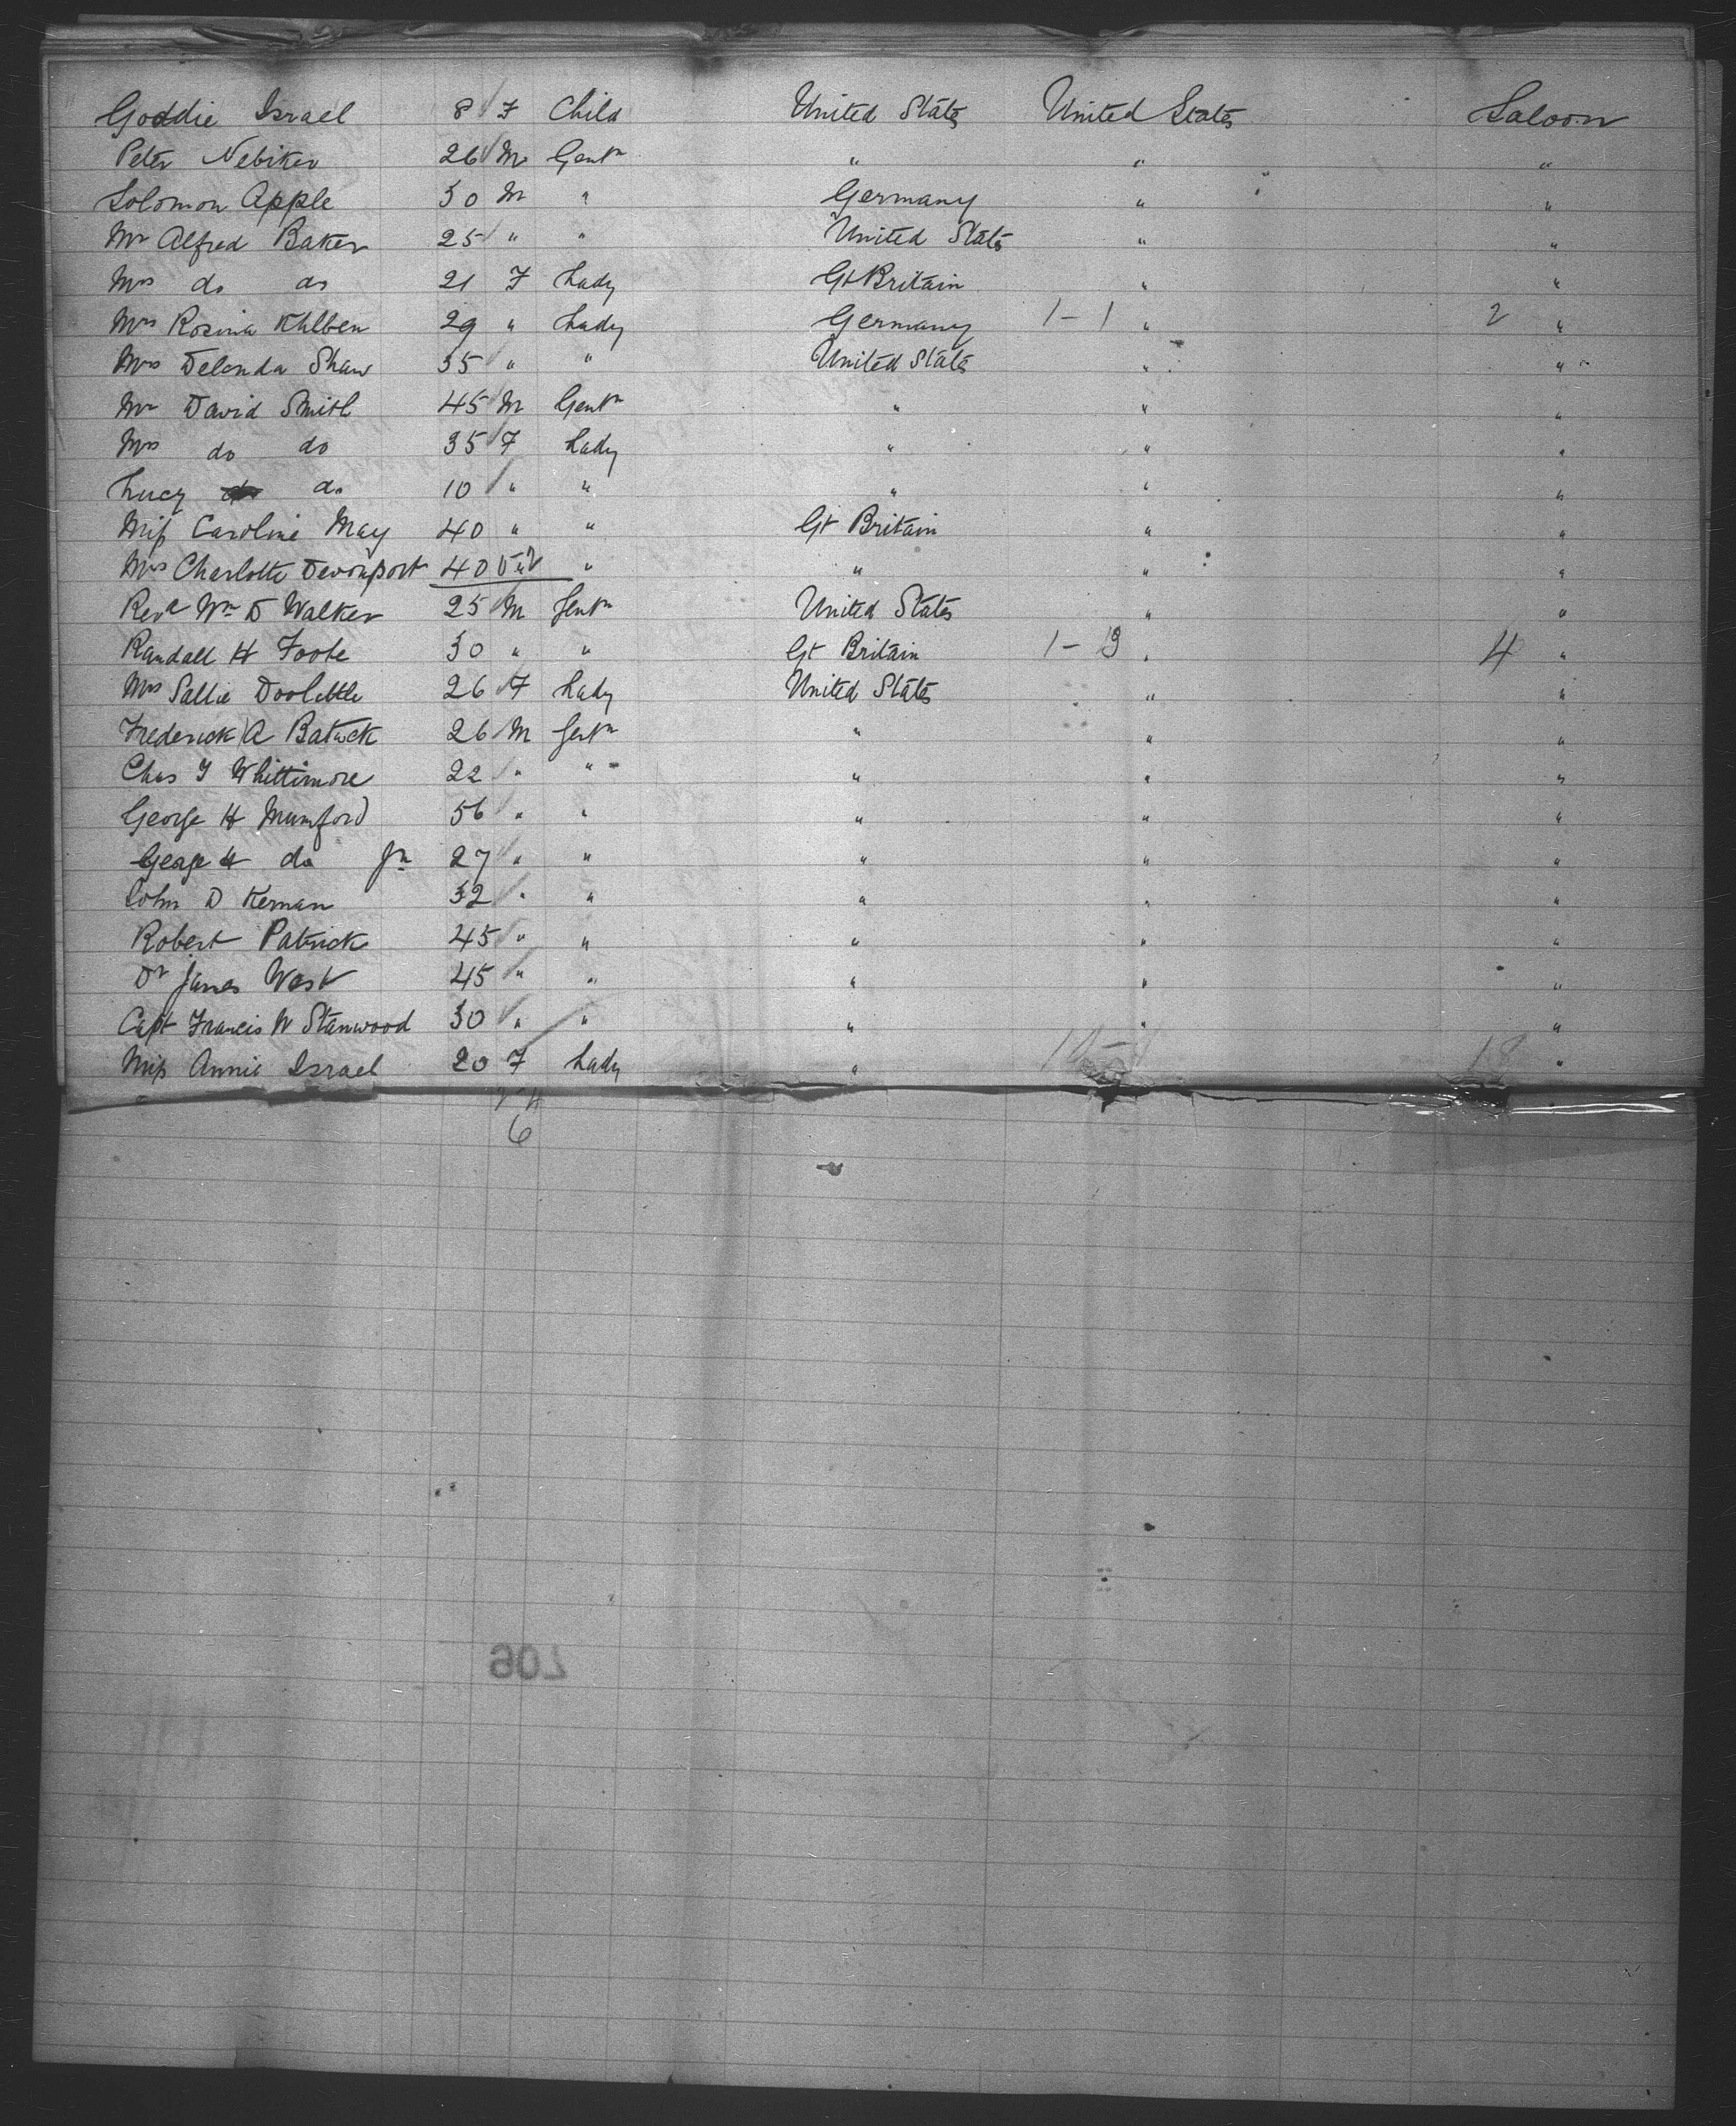 Goddie Israel 8 F Child United States United States Saloon
Peter Nebiker 26 M Gentn " " "
Solomon Apple 30 M " Germany " "
Mr Alfred Baker 25 " " United States " "
Mrs do do 21 F Lady Gt Britain " "
Mrs Rosina Khlben 29 " Lady Germany 1-1 " 2 "
Mrs Delonda Shaw 35 " " United States " "
Mr David Smith 45 M Gentn " " "
Mrs do do 35 F Lady " " "
Lucy do 10 " " " " "
Miss Caroline May 40 " " Gt Britain " "
Mrs Charlotte Devonport 40 " " " " "
Revd Wm D Walker 25 M Gentn United States " "
Randall H Foote 30 " " Gt Britain 1- " 4 "
Mrs Sallie Doolittle 26 F Lady United States " "
Frederick A Batwck 26 M Gentn " " "
Chas Y Whittimore 22 " " " " "
George H Mumford 56 " " " " "
George H do Jn 27 " " " " "
John D Kernan 32 " " " " "
Robert Patrick 45 " " " " "
Dr James West 45 " " " " "
Capt Francis W Stanwood 30 " " " " "
Miss Annie Israel 20 F Lady " 18 "
6